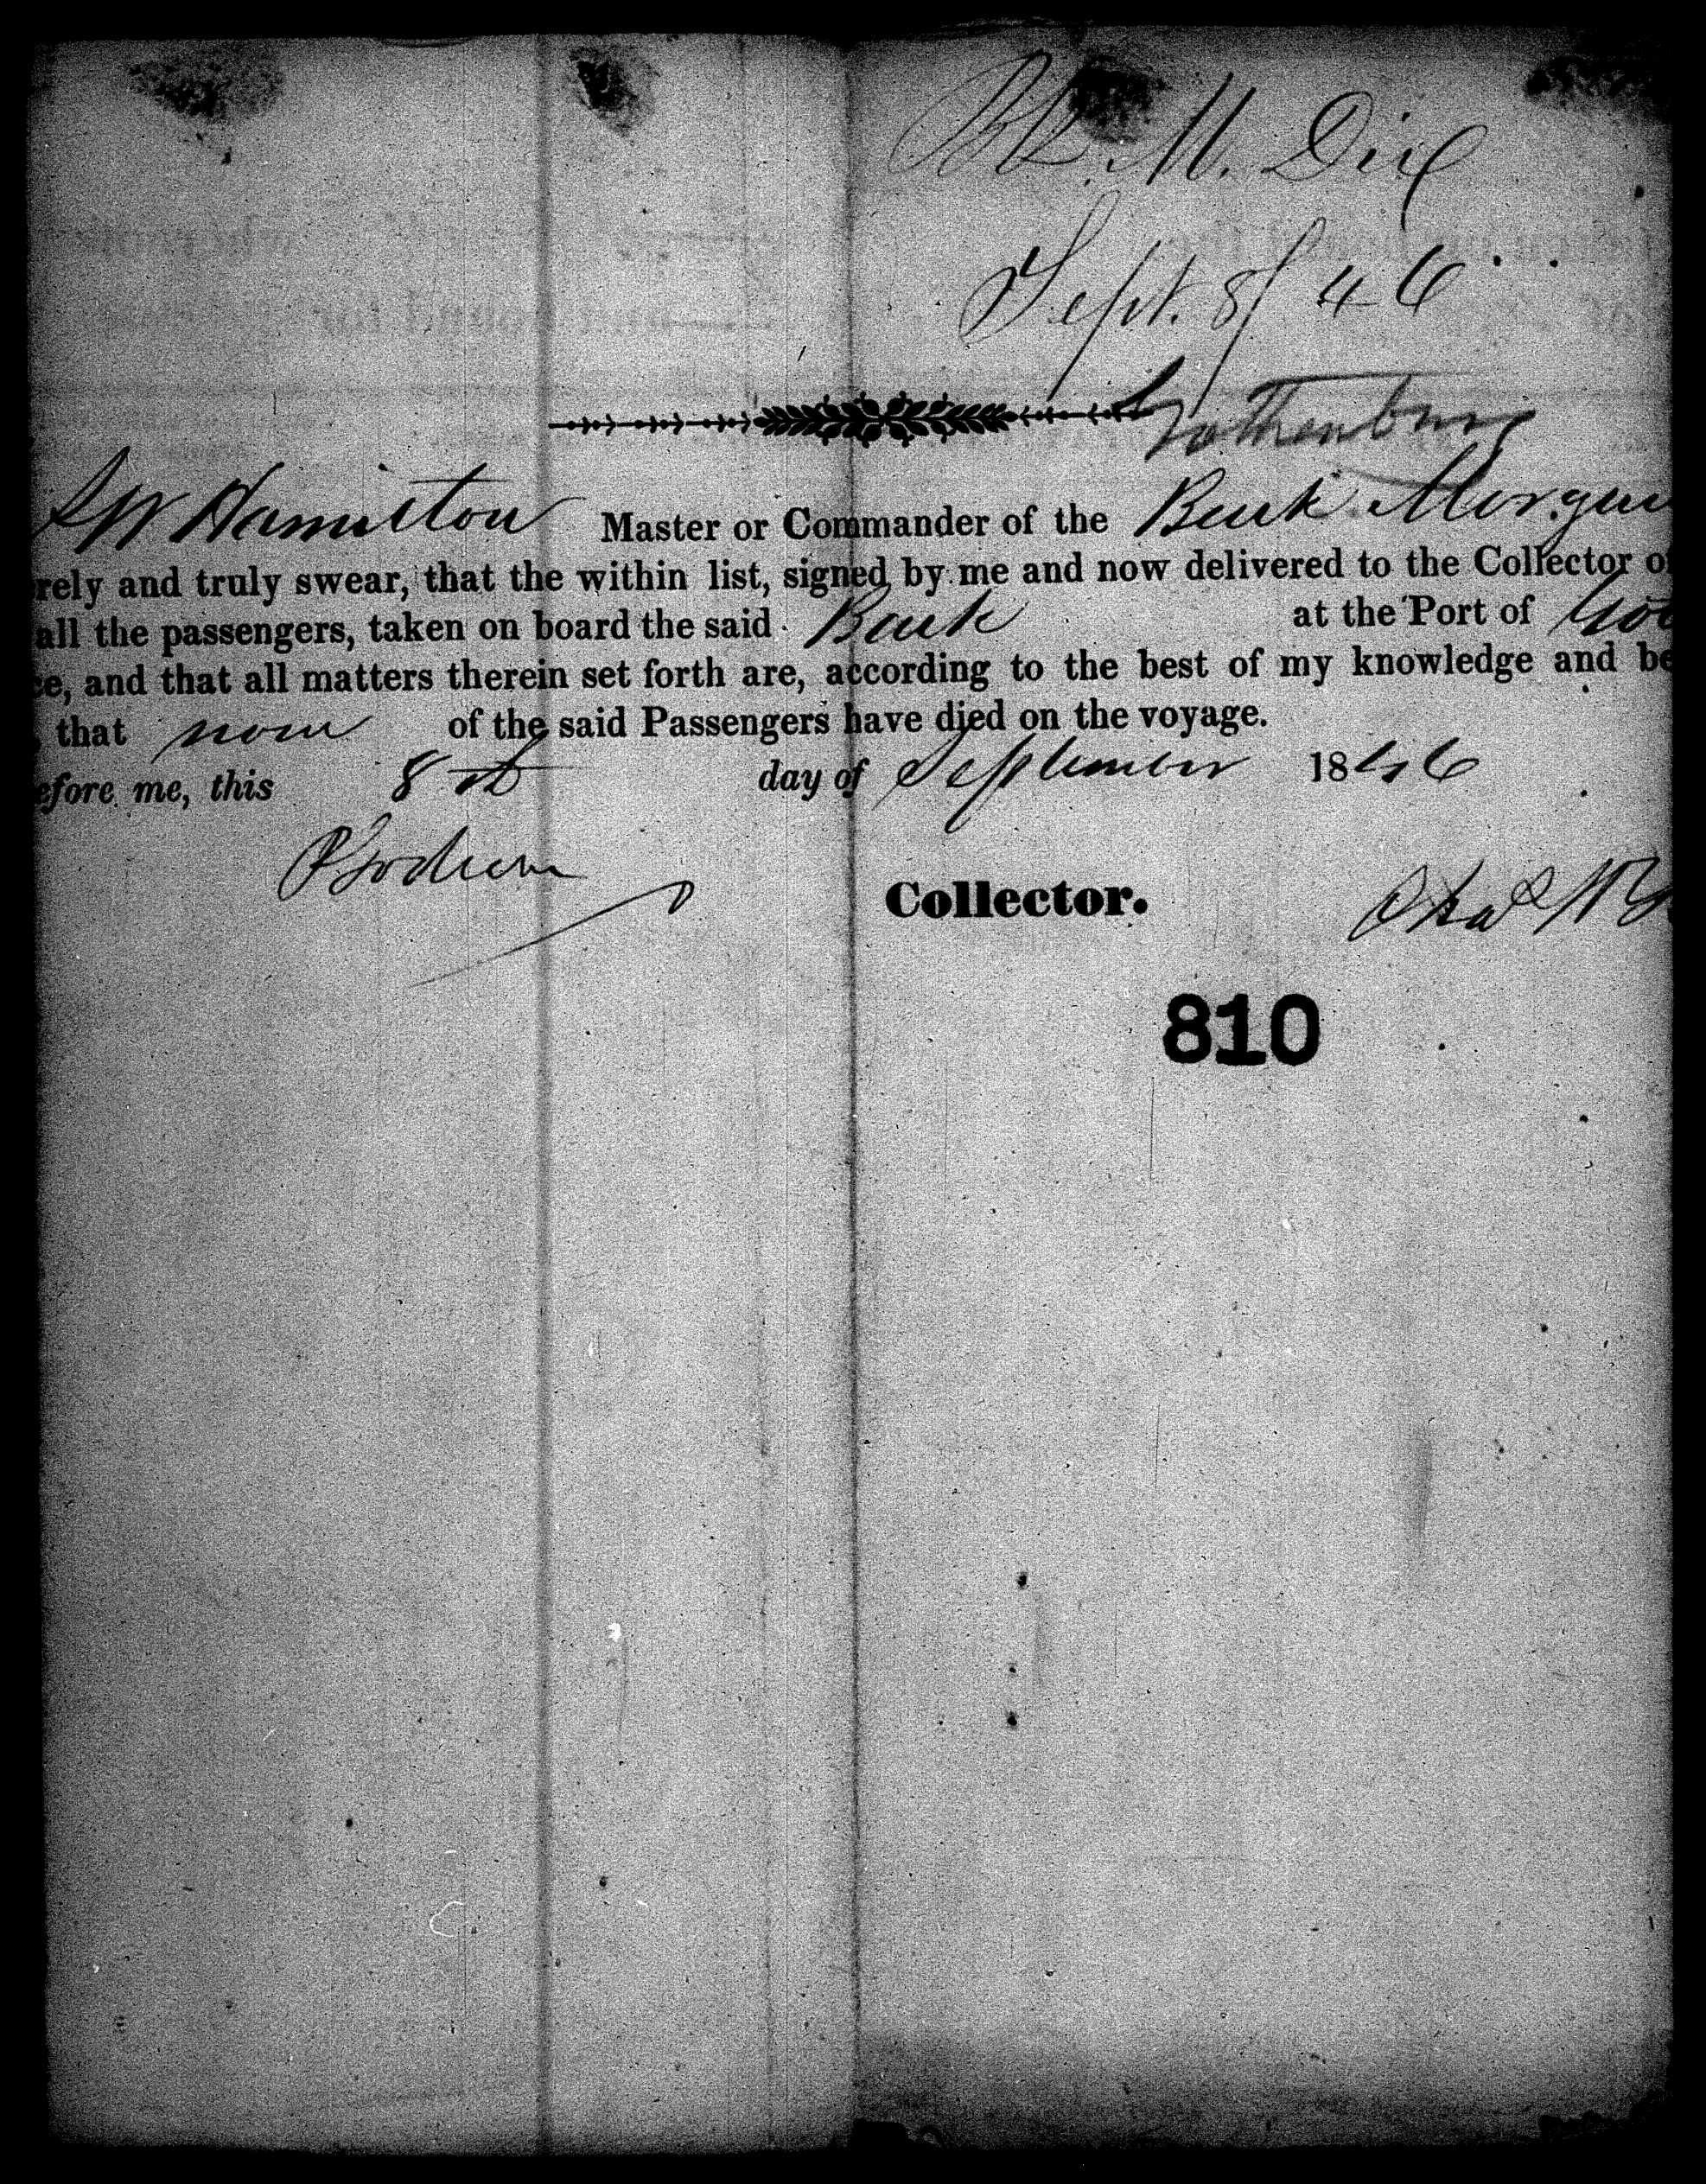 Bk. M. Dix
Sept. 8/ 46
Gothenburg
W Hamilton Master or Commander of the Bark Morgan
rely and truly swear, that the within list, signed by me and now delivered to the Collector o
all the passengers, taken on board the said Bark at the Port of Got
ce, and that all matters therein set forth are, according to the best of my knowledge and be
that none of the said Passengers have died on the voyage.
efore me, this 8th day of September 1846
Collector. Chas W
810